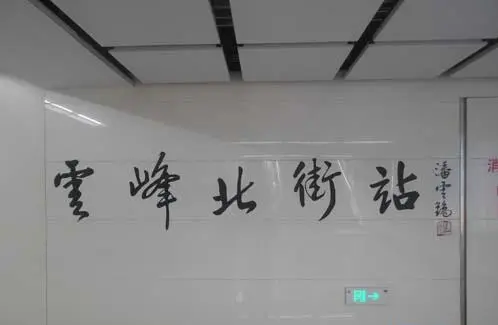 雲峰北街站
潘雲鶴
消